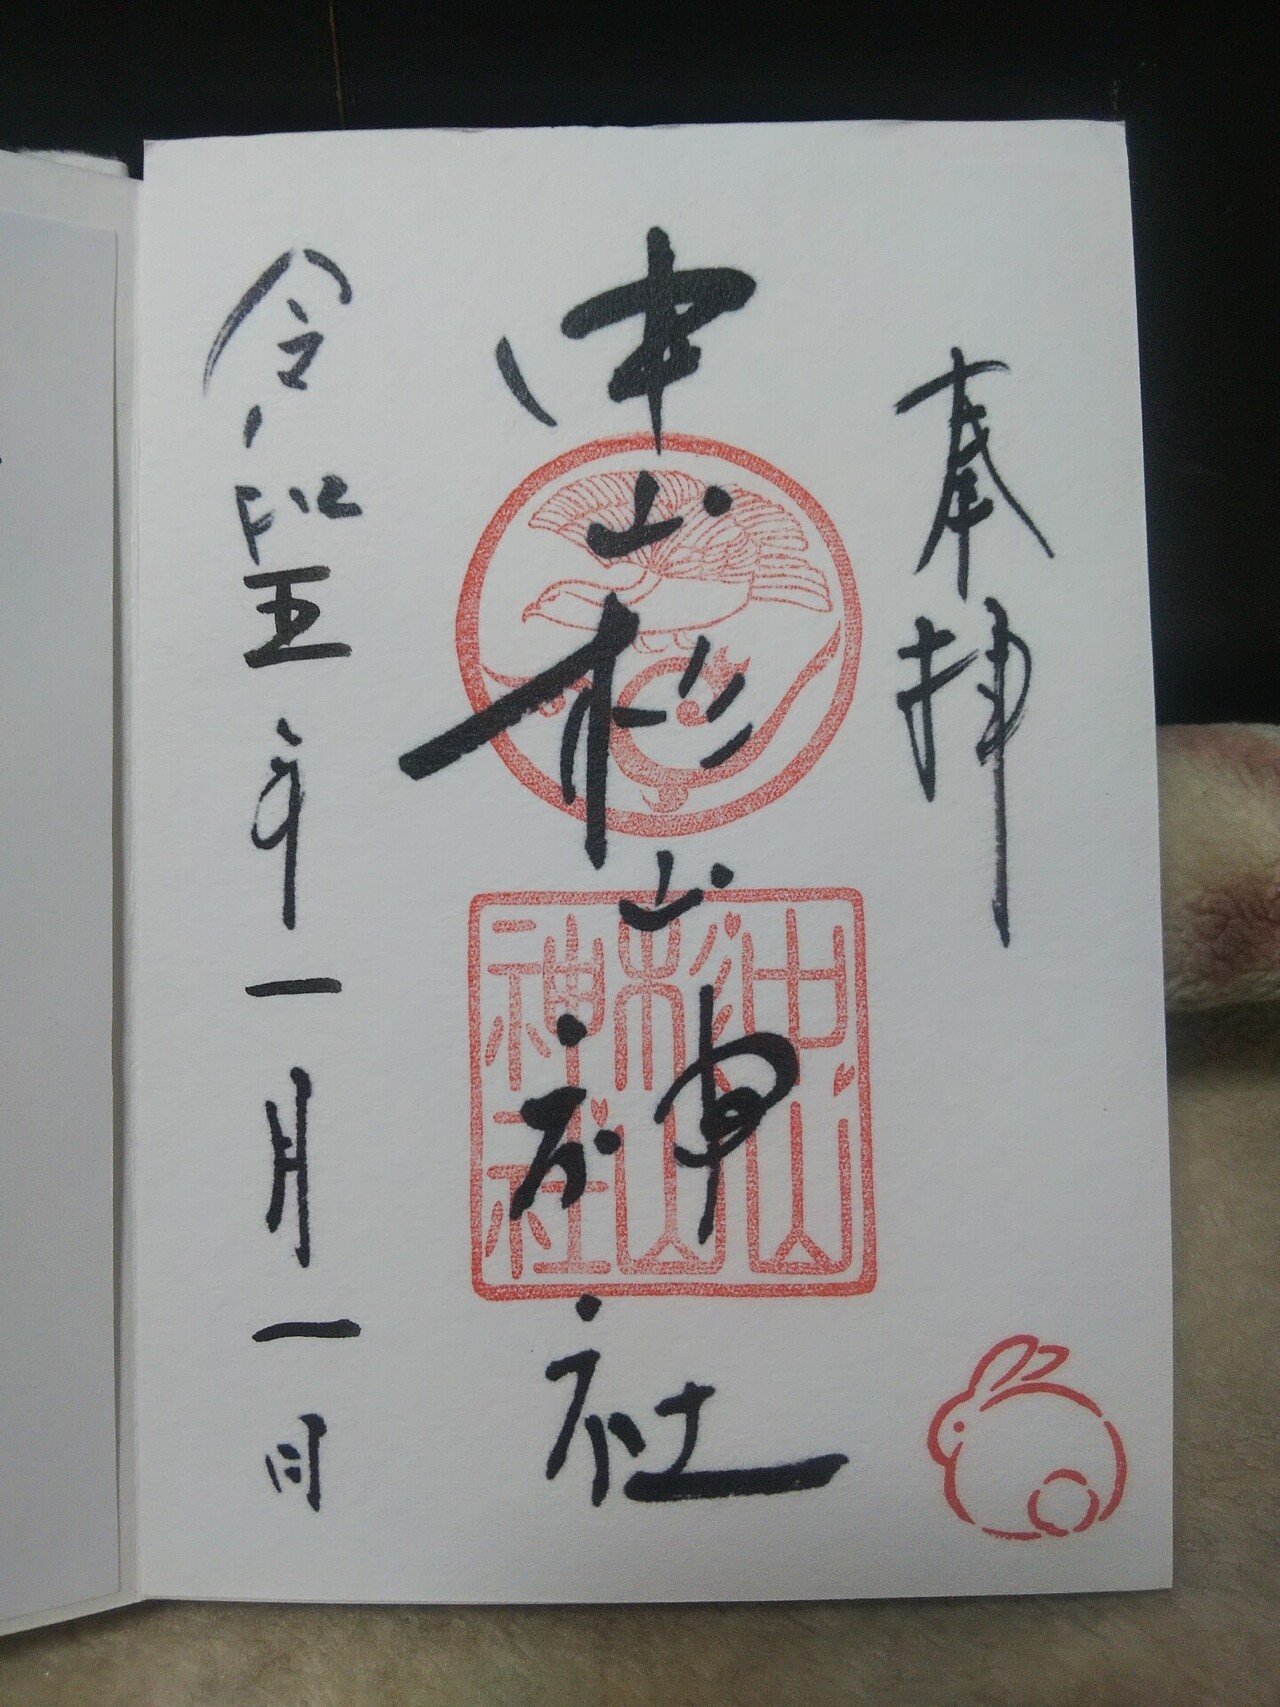 奉拝
中山杉山神社
中山
杉山
神社
令和五年一月一日